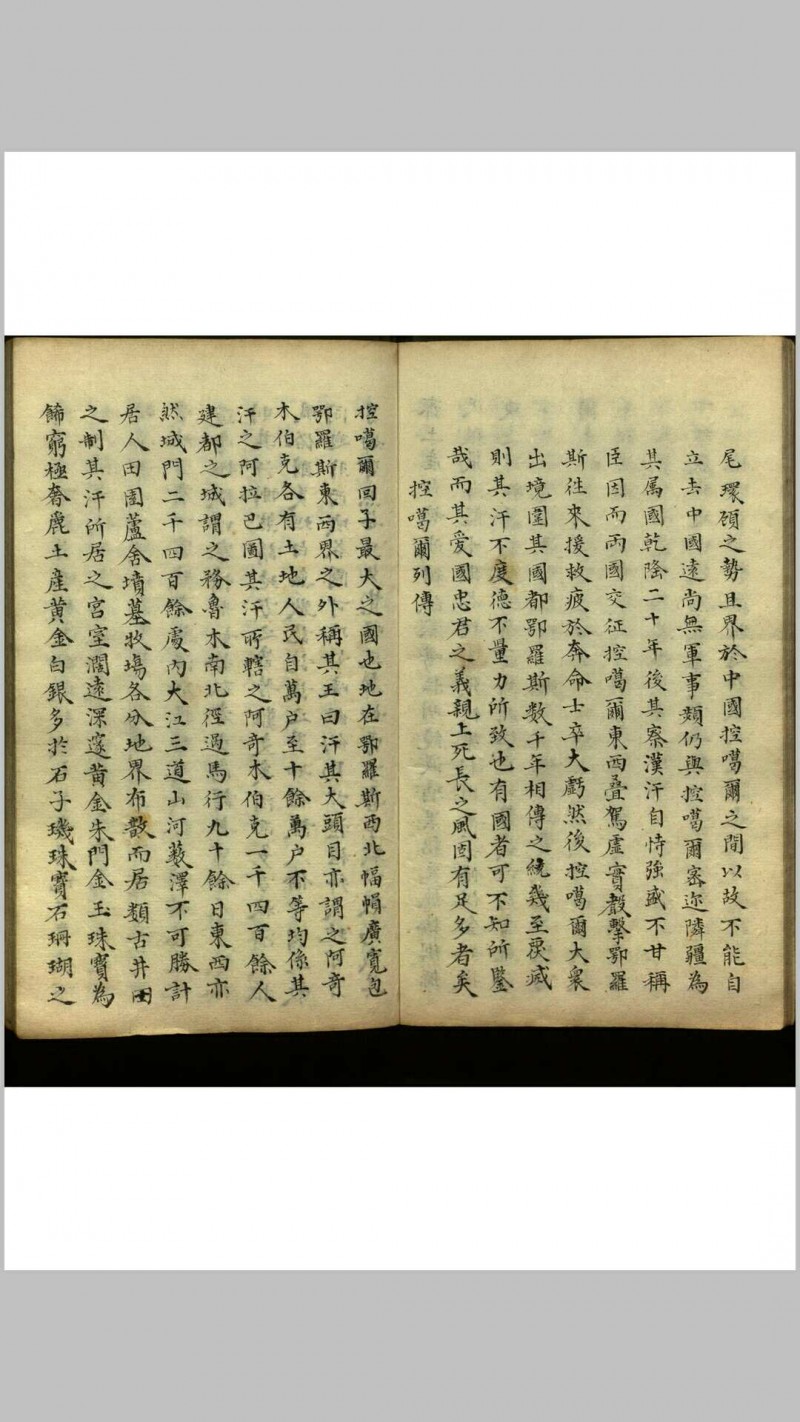 尾環顧之勢且界於中國控噶爾之間以故不能自
立去中國遠尚無軍事類仍與控噶爾密迩隣疆為
其属國乾隆二十年後其察漢汗自恃強盛不甘稱
臣因而兩國交征控噶爾東西疊駕虛實觳擊鄂羅
斯往來援救疲於奔命士卒大虧然後控噶爾大衆
出境圍其國都鄂羅斯數千年相傳之統幾至厥滅
則其汗不度德不量力所致也有國者可不知所鑒
哉而其愛國忠君之義親上死長之風固有足多者矣
控噶爾列傳
控噶爾回子最大之國也地在鄂羅斯西北幅㡓廣寬包
鄂羅斯東西界之外稱其王曰汗其大頭目亦謂之阿竒
木伯克各有土地人民自萬户至十餘萬户不等均係其
汗之阿拉巴圖其汗所轄之阿竒木伯克一千四百餘人
建都之城謂之務魯木南北徑過馬行九十餘日東西亦
然城門二千四百餘處內大江三道山河藪澤不可勝計
居人田園蘆舍墳墓牧塲各分地界布散而居類古井田
之制其汗所居之宮室濶遠深邃黄金朱門金玉珠寶為
飾窮極奢麗土産黄金白銀多扵石子璣珠寳石珊瑚之